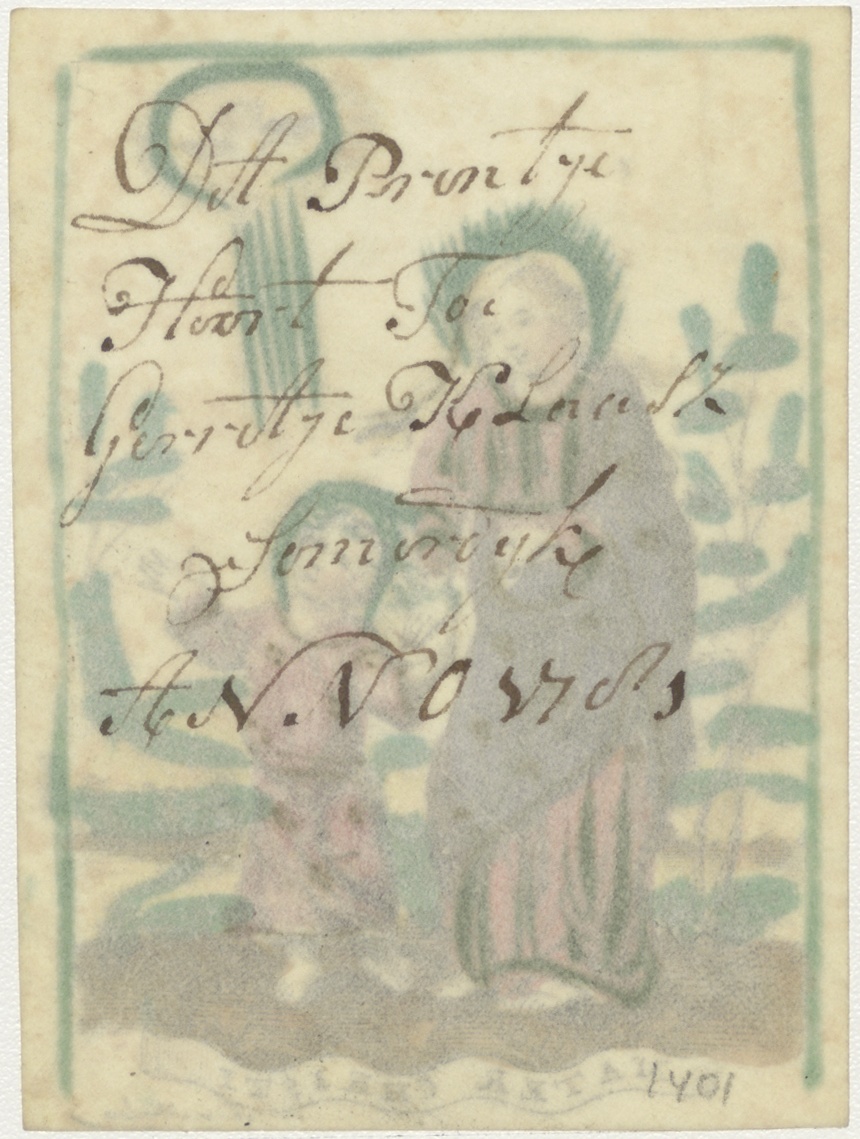 Dit Prentje
Hoort Toe
Gerritje Klaasz
Somerdyk
ANNO 1781
1401